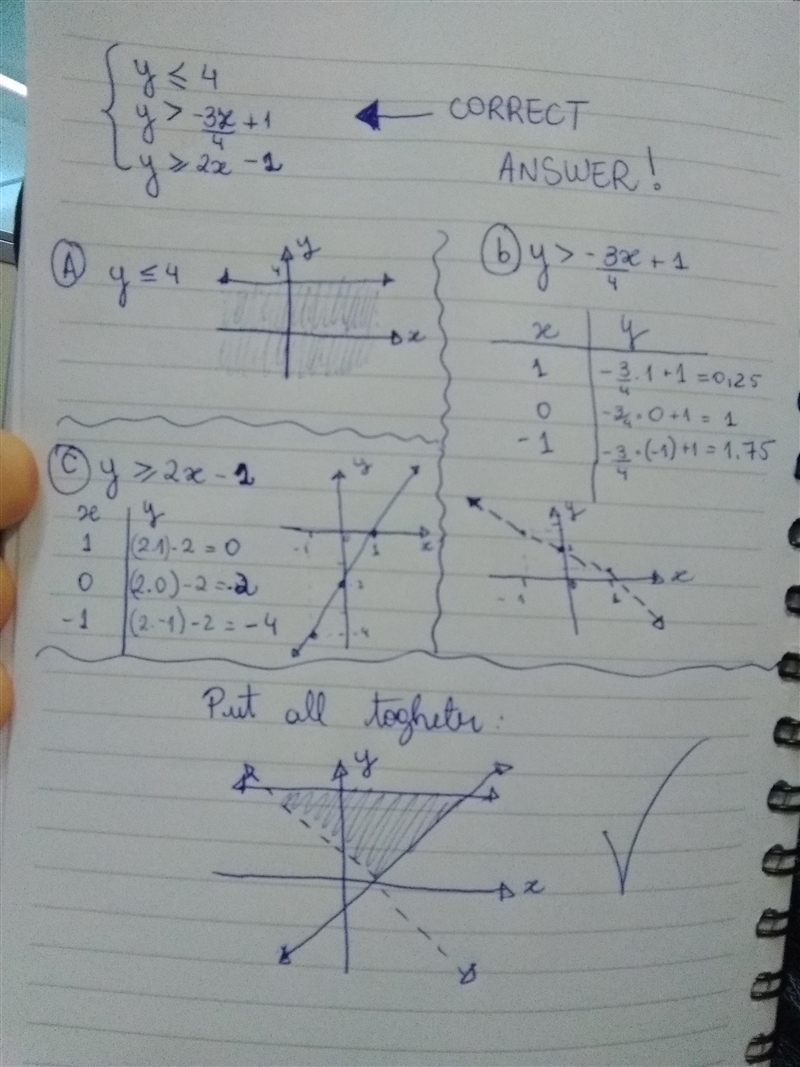 y ≤ 4
y > -3x/4 + 1
y ≥ 2x - 2
CORRECT
ANSWER!
A y ≤ 4
y
4
x
b y > -3x/4 + 1
x y
1 -3/4 · 1 + 1 = 0,25
0 -3/4 · 0 + 1 = 1
-1 -3/4 · (-1) + 1 = 1.75
y
x
-1
1
C y ≥ 2x - 2
x y
1 (2.1) - 2 = 0
0 (2.0) - 2 = -2
-1 (2.-1) - 2 = -4
y
x
-1
1
-4
Put all togheter:
y
x